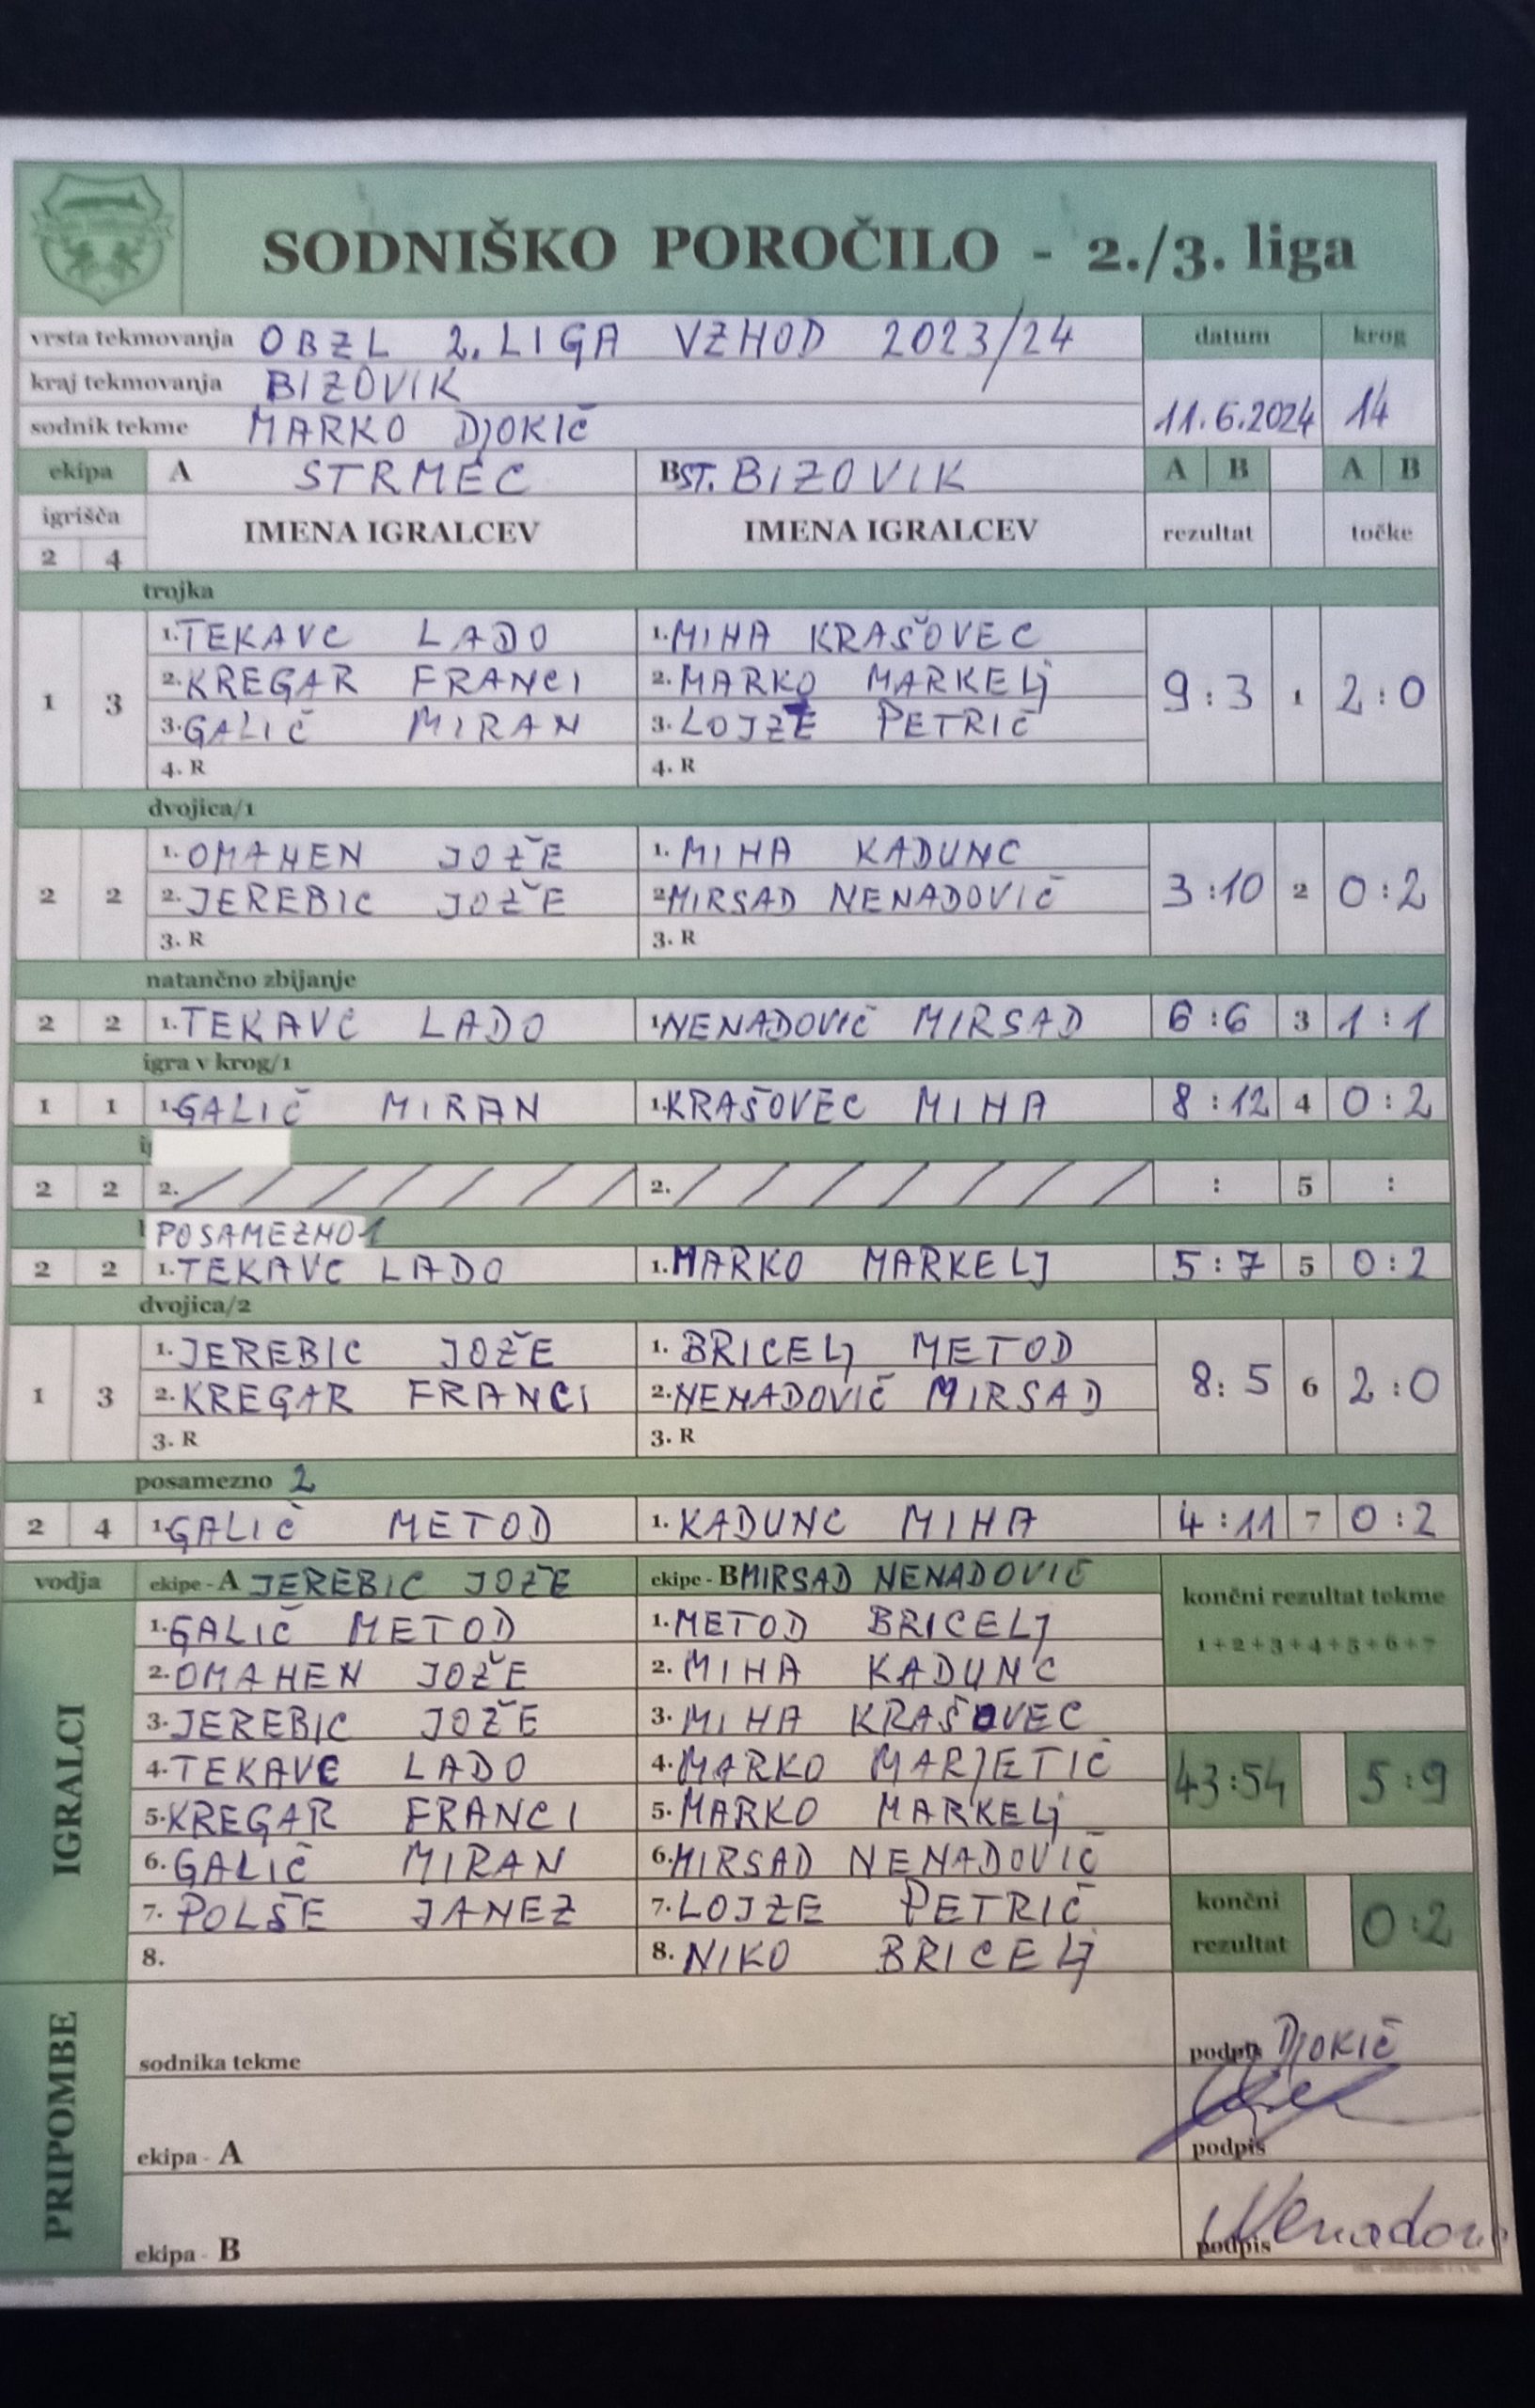 SODNIŠKO POROČILO - 2./3. liga
vrsta tekmovanja OBZL 2. LIGA VZHOD 2023/24 datum krog
kraj tekmovanja BIZOVIK
sodnik tekme MARKO DJOKIČ 11.6.2024 14
ekipa A STRMEC B ŠT. BIZOVIK A B A B
igrišča IMENA IGRALCEV IMENA IGRALCEV rezultat točke
2 4
trojka
1. TEKAVC LADO 1. MIHA KRAŠOVEC
2. KREGAR FRANCI 2. MARKO MARKELJ
1 3 9 : 3 1 2 : 0
3. GALIČ MIRAN 3. LOJZE PETRIČ
4. R 4. R
dvojica/1
1. OMAHEN JOŽE 1. MIHA KADUNC
2 2 2. JEREBIC JOŽE 2. MIRSAD NENADOVIČ 3 : 10 2 0 : 2
3. R 3. R
natančno zbijanje
2 2 1. TEKAVC LADO 1. NENADOVIČ MIRSAD 6 : 6 3 1 : 1
igra v krog/1
1 1 1. GALIČ MIRAN 1. KRAŠOVEC MIHA 8 : 12 4 0 : 2
2 2 2. / / / / / / / 2. / / / / / / / : 5 :
POSAMEZNO 1
2 2 1. TEKAVC LADO 1. MARKO MARKELJ 5 : 7 5 0 : 2
dvojica/2
1. JEREBIC JOŽE 1. BRICELJ METOD
1 3 2. KREGAR FRANCI 2. NENADOVIČ MIRSAD 8 : 5 6 2 : 0
3. R 3. R
posamezno 2
2 4 1. GALIČ METOD 1. KADUNC MIHA 4 : 11 7 0 : 2
vodja ekipe - A JEREBIC JOŽE ekipe - B MIRSAD NENADOVIČ končni rezultat tekme
1+2+3+4+5+6+7
IGRALCI
1. GALIČ METOD 1. METOD BRICELJ
2. OMAHEN JOŽE 2. MIHA KADUNC
3. JEREBIC JOŽE 3. MIHA KRAŠOVEC
4. TEKAVC LADO 4. MARKO MARJETIČ 43:54 5:9
5. KREGAR FRANCI 5. MARKO MARKELJ
6. GALIČ MIRAN 6. MIRSAD NENADOVIČ
7. POLŠE JANEZ 7. LOJZE PETRIČ končni rezultat 0:2
8. 8. NIKO BRICELJ
PRIPOMBE
sodnika tekme podpis DJOKIČ
ekipa - A podpis
ekipa - B podpis